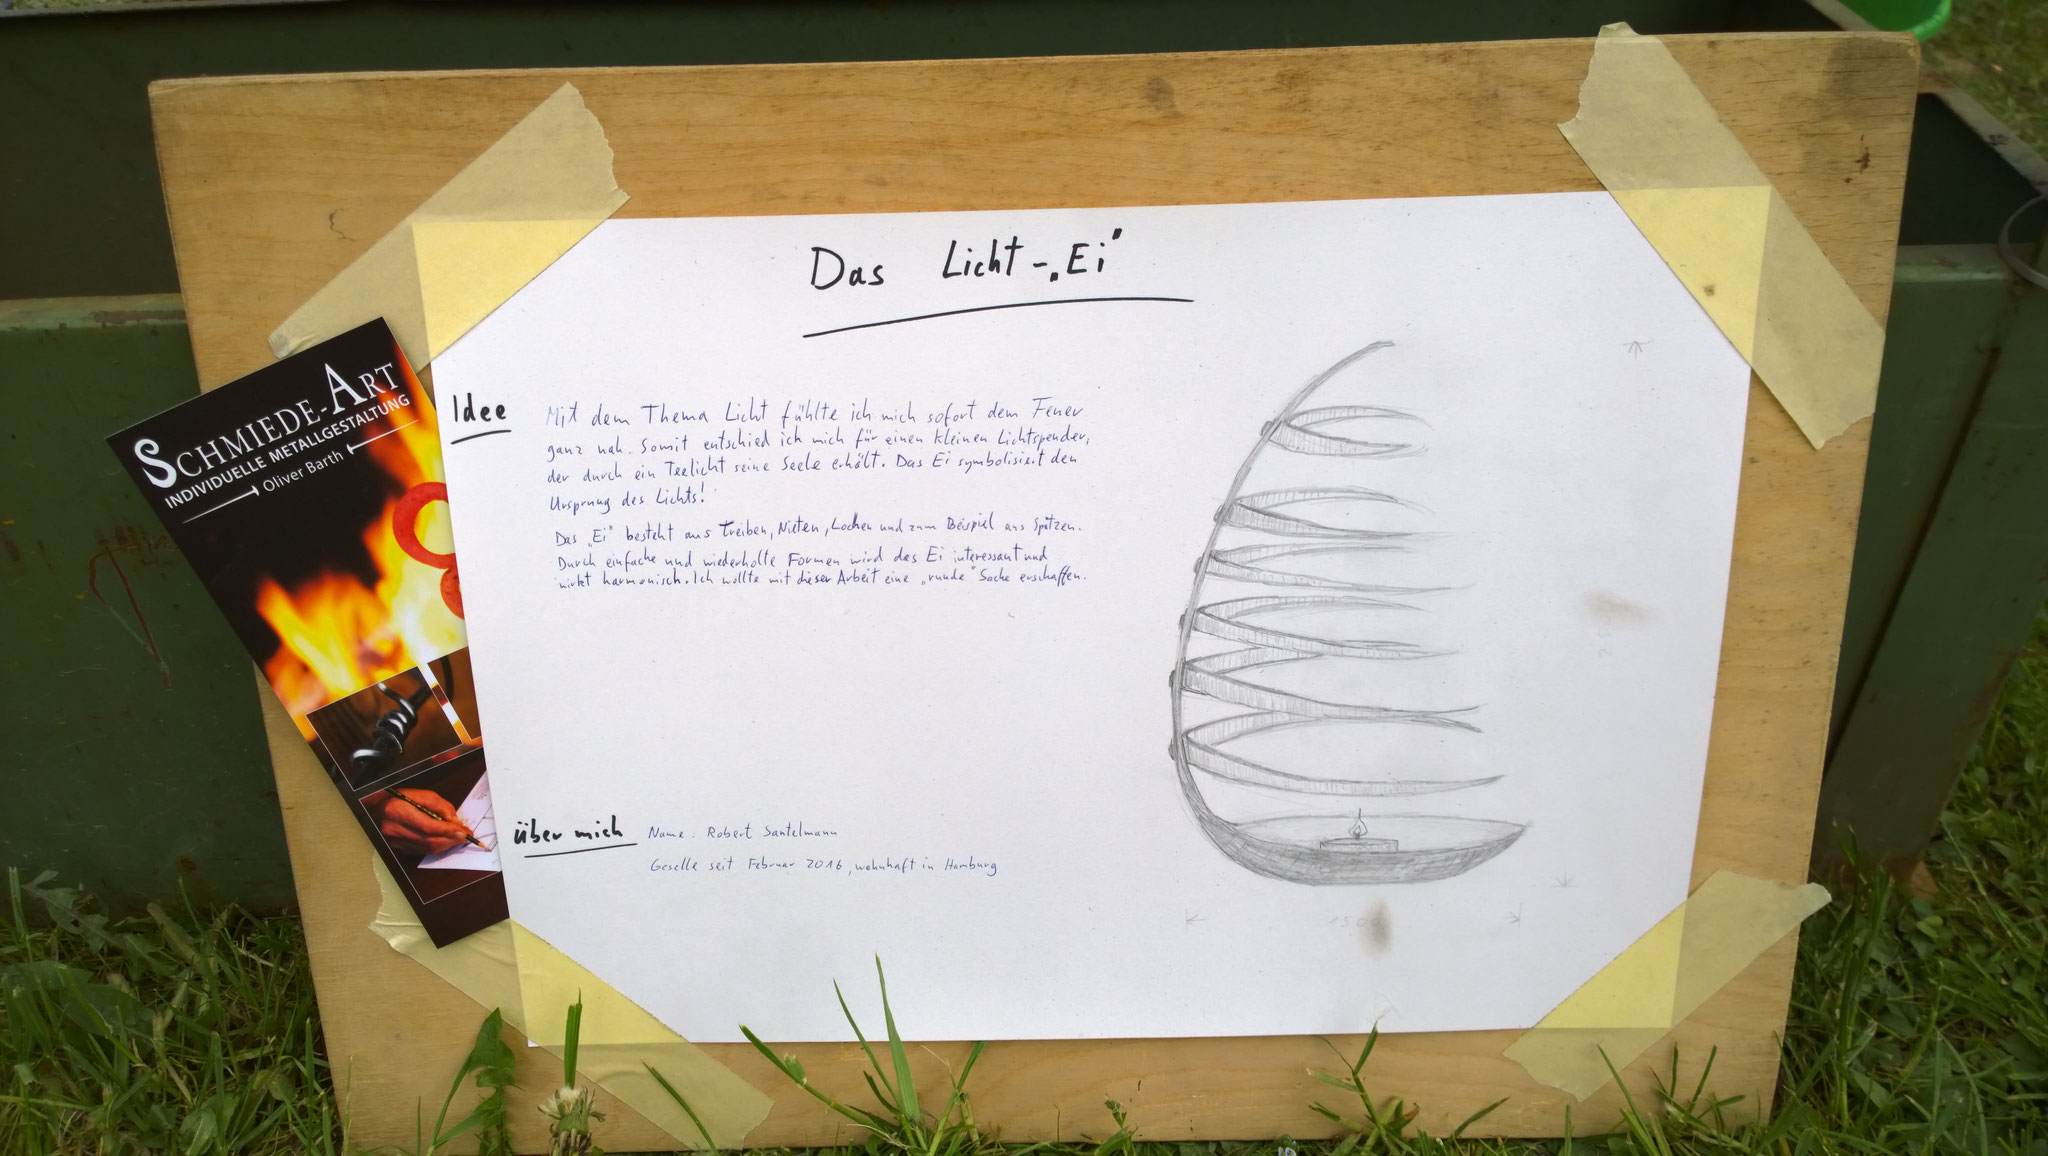 Das Licht-„Ei"
SCHMIEDE-ART
INDIVIDUELLE METALLGESTALTUNG
Oliver Barth
Idee
Mit dem Thema Licht fühlte ich mich sofort dem Feuer
ganz nah. Somit entschied ich mich für einen kleinen Lichtspender,
der durch ein Teelicht seine Seele erhält. Das Ei symbolisiert den
Ursprung des Lichts!
Das „Ei" besteht aus Treiben, Nieten, Lochen und zum Beispiel aus Spitzen.
Durch einfache und wiederholte Formen wird das Ei interessant und
wirkt harmonisch. Ich wollte mit dieser Arbeit eine „runde" Sache erschaffen.
über mich
Name: Robert Santelmann
Geselle seit Februar 2016, wohnhaft in Hamburg